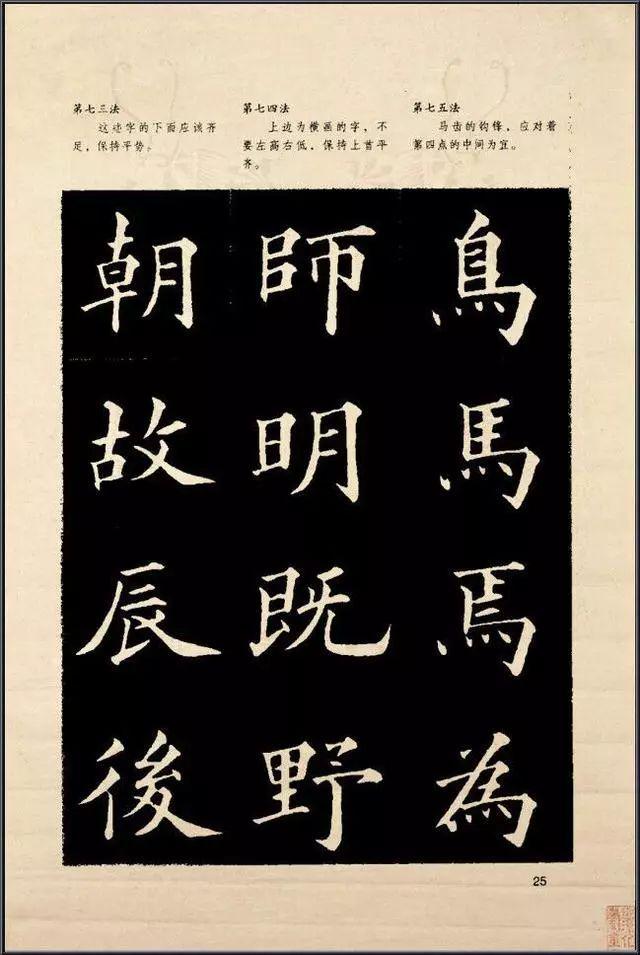 第七三法
这些字的下面应该齐
足，保持平势。
第七四法
上边为横画的字，不
要左高右低，保持上首平
齐。
第七五法
马齿的钩锋，应对着
第四点的中间为宜。
朝故辰後
師明既野
鳥馬焉為
25